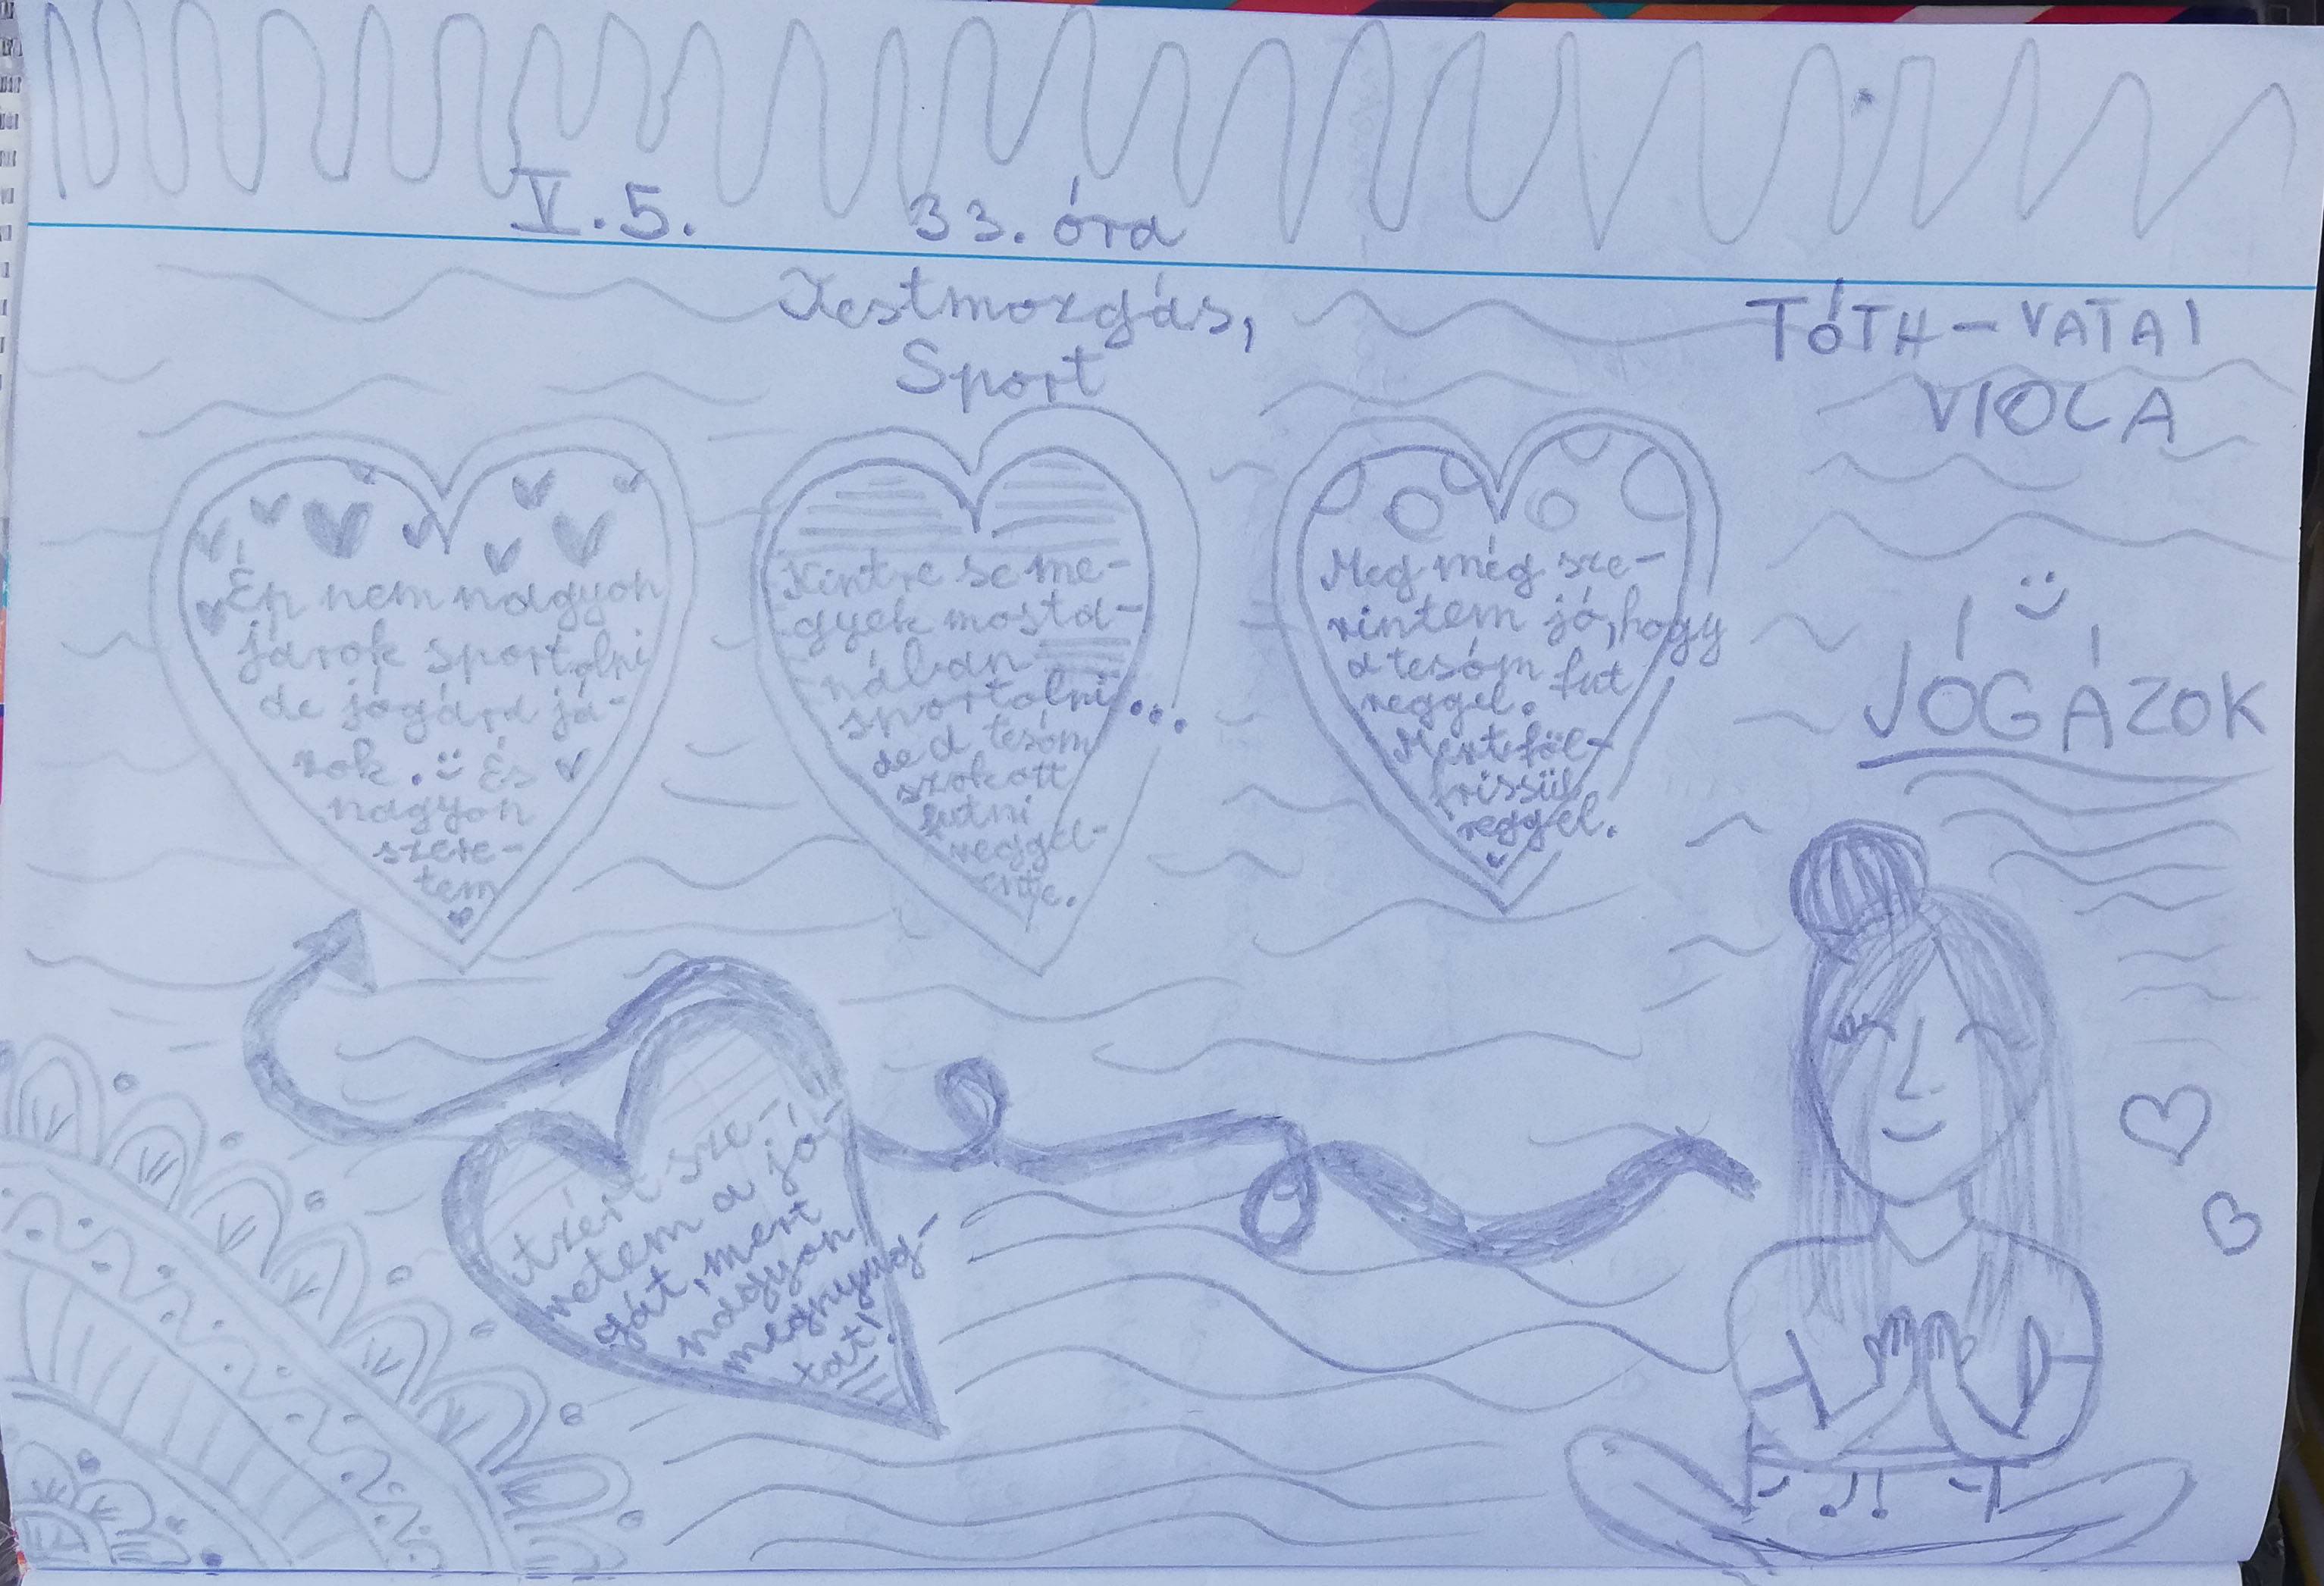 V.5. 33. óra
Testmozgás,
Sport
TÓTH-VATAI
VIOLA
Én nem nagyon
járok sportolni
de jógára já-
rok. És
nagyon
szere-
tem
Kintre se me-
gyek mosta-
nában
sportolni...
de a tesóm
szokott
futni
reggel-
ente.
Meg még sze-
rintem jó, hogy
a tesóm fut
reggel.
Mert föl-
frissül
reggel.
JÓGÁZOK
Azért sze-
retem a jó-
gát, mert
nagyon
megnyug-
tat!